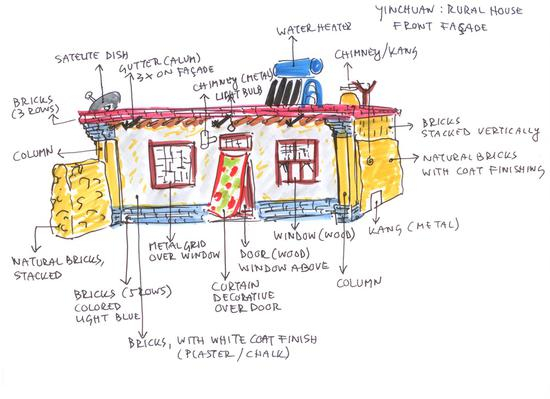 YINCHUAN: RURAL HOUSE
FRONT FAÇADE
WATER HEATER
SATELITE DISH
GUTTER (ALUM)
3X ON FAÇADE
CHIMNEY (METAL)
LIGHT BULB
CHIMNEY/KANG
BRICKS
(3 ROWS)
BRICKS
STACKED VERTICALLY
COLUMN
NATURAL BRICKS
WITH COAT FINISHING
KANG (METAL)
NATURAL BRICKS,
STACKED
METAL GRID
OVER WINDOW
DOOR (WOOD)
WINDOW ABOVE
WINDOW (WOOD)
COLUMN
BRICKS (5 ROWS)
COLORED
LIGHT BLUE
CURTAIN
DECORATIVE
OVER DOOR
BRICKS, WITH WHITE COAT FINISH
(PLASTER/CHALK)